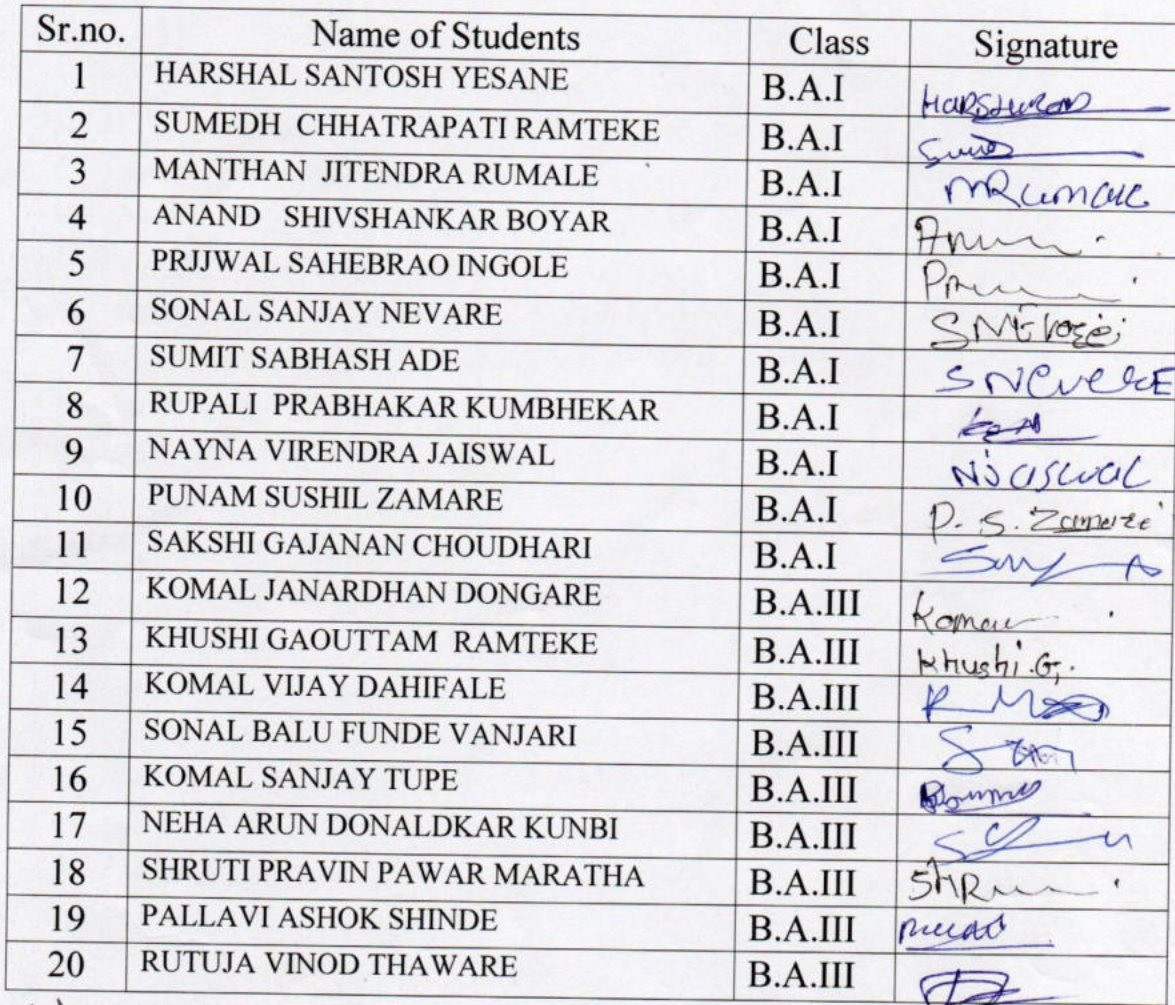 Sr.no. Name of Students Class Signature
1 HARSHAL SANTOSH YESANE B.A.I
2 SUMEDH CHHATRAPATI RAMTEKE B.A.I
3 MANTHAN JITENDRA RUMALE B.A.I MRumale
4 ANAND SHIVSHANKAR BOYAR B.A.I
5 PRJJWAL SAHEBRAO INGOLE B.A.I
6 SONAL SANJAY NEVARE B.A.I
7 SUMIT SABHASH ADE B.A.I
8 RUPALI PRABHAKAR KUMBHEKAR B.A.I
9 NAYNA VIRENDRA JAISWAL B.A.I
10 PUNAM SUSHIL ZAMARE B.A.I P. S. Zamare
11 SAKSHI GAJANAN CHOUDHARI B.A.I
12 KOMAL JANARDHAN DONGARE B.A.III
13 KHUSHI GAOUTTAM RAMTEKE B.A.III Khushi.G.
14 KOMAL VIJAY DAHIFALE B.A.III
15 SONAL BALU FUNDE VANJARI B.A.III
16 KOMAL SANJAY TUPE B.A.III
17 NEHA ARUN DONALDKAR KUNBI B.A.III
18 SHRUTI PRAVIN PAWAR MARATHA B.A.III
19 PALLAVI ASHOK SHINDE B.A.III
20 RUTUJA VINOD THAWARE B.A.III